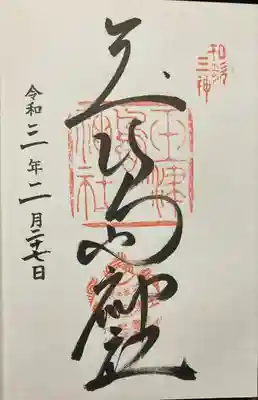 和歌三神
玉津島神社
玉津島神社
令和三年二月二十七日